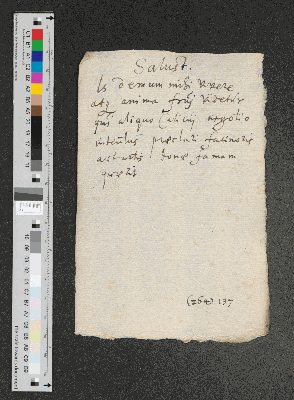 Salust.
Is demum mihi vivere
atq anima frui videtur
qui aliquo negotio
intentus præclari facinoris
artis bonæ famam
quærit
(264) 137